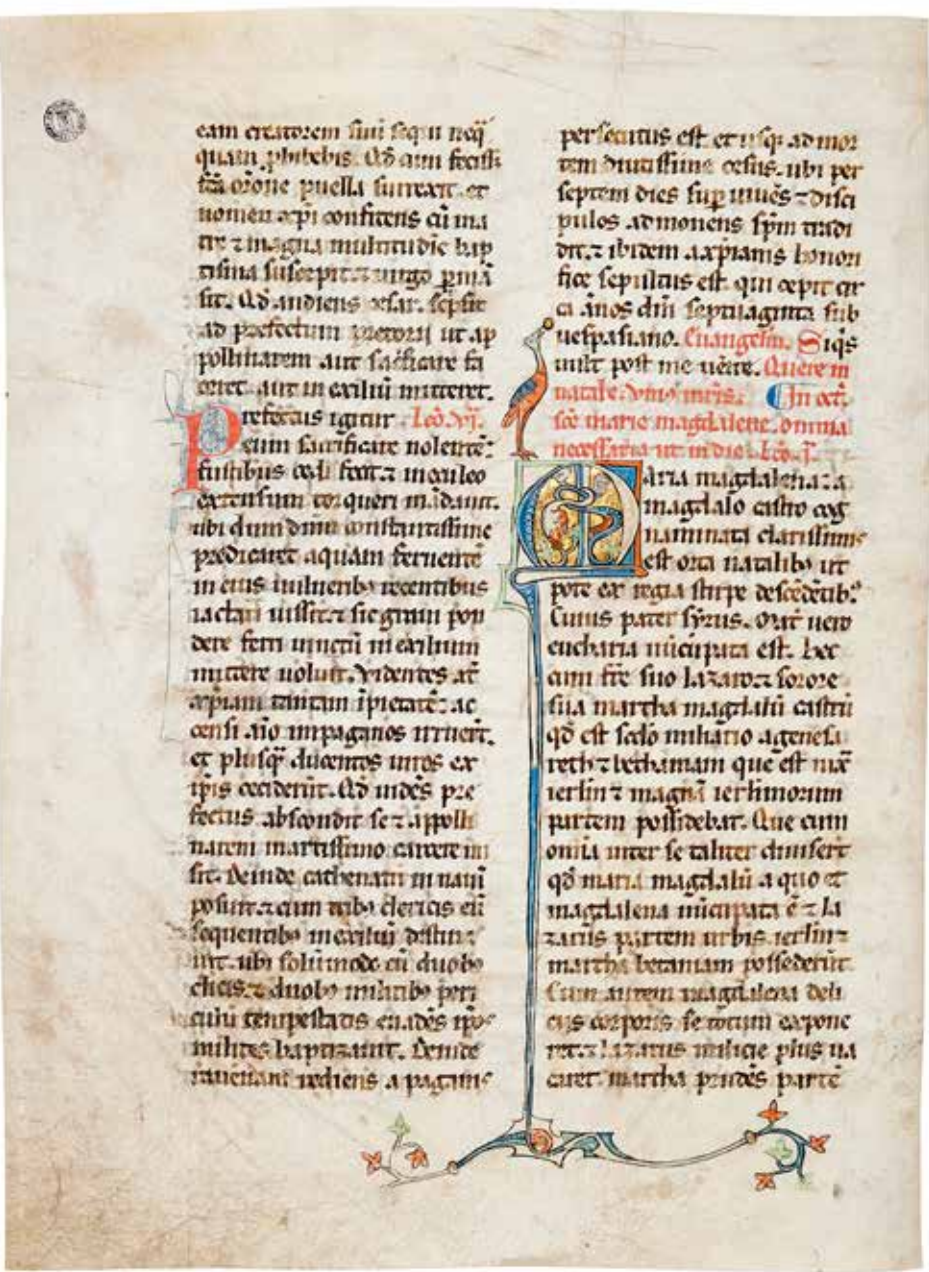 eam creatorem suũ sequi neq̃
quam ꝓhibebis. Qđ cum fecissꝫ
fc̃a or̃one puella surrexit. et
nomen xp̃i confitens cũ ma
tre ⁊ magna multitudĩe bap
tisma suscepit. ⁊ uirgo ꝑmã
sit. Qđ audiens cesar. scpsit
ad prefectum pretorii ut ap
pollinarem aut sac̃ficare fa
ceret. aut in exiliũ mitteret.
Prefectus igitur Lcõ. vj.
eum sacrificare nolentẽ:
fustibus cedi fecit. ⁊ in eculeo
extensum torqueri mãdauit.
ubi dum dñm constantissime
predicaret aquam feruentẽ
in eius uulneribꝰ recentibus
iactari iussit. ⁊ sic graui pon
dere ferri uinctũ in exilium
mittere uoluit. Videntes aũ
xp̃iani tantam ĩpietatẽ: ac
censi aĩo in paganos irruerũt.
et plusq̃ ducentos uiros ex
ip̃is occiderũt. Qđ uidẽs pre
fectus abscondit se ⁊ appolli
narem in artissimo carcere mi
sit. Deinde cathenatũ in nauĩ
posuit. ⁊ cum tribꝰ clericis eũ
sequentibꝰ in exiliũ
ubi solũmodo cũ duobꝰ
cl̃icis. ⁊ duobꝰ militibꝰ peri
culũ tempestatis euadẽs ip̃os
milites baptizauit. Deinde
rauennam rediens a paganis
persecutus est. et usqꝫ ad mor
tem diutissime cesus. ubi per
septem dies suꝑ uiuẽs ⁊ disci
pulos admonens sp̃m tradi
dit. ⁊ ibidem a xp̃ianis honori
fice sepultus est. qui cepit cir
ca ãnos dñi septuaginta sub
uespasiano. Euangeliũ. Siq̃s
uult post me uẽire. Quere in
natale. vniꝰ mr̃is. In oct̃.
sc̃e marie magdalene. omnia
necessaria ut in die. Lcõ. j̃.
Maria magdalena: a
magdalo castro cog
nominata clarissimis
est orta natalibꝰ ut
pote ex regia stirpe descẽdẽtibꝰ.
Cuius pater syrus. mat̃ uero
eucharia nũcupata est. Hec
cum fr̃e suo lazaro. ⁊ sorore
sua martha magdalũ castrũ
qđ est secđo miliario a genesa
reth ⁊ bethaniam que est iuxᵃ
ierl̃m ⁊ magnã ierl̃imorum
partem possidebat. Que cum
om̃ia inter se taliter diuiserĩt
qđ maria magdalũ a quo et
magdalena nũcupata ẽ ⁊ la
zarus partem urbis. ierl̃m ⁊
martha betaniam possederũt
Cum autem magdalena deli
ciis corporis se totum expone
ret. ⁊ lazarus milicie plus ua
caret. martha prudẽs partẽ